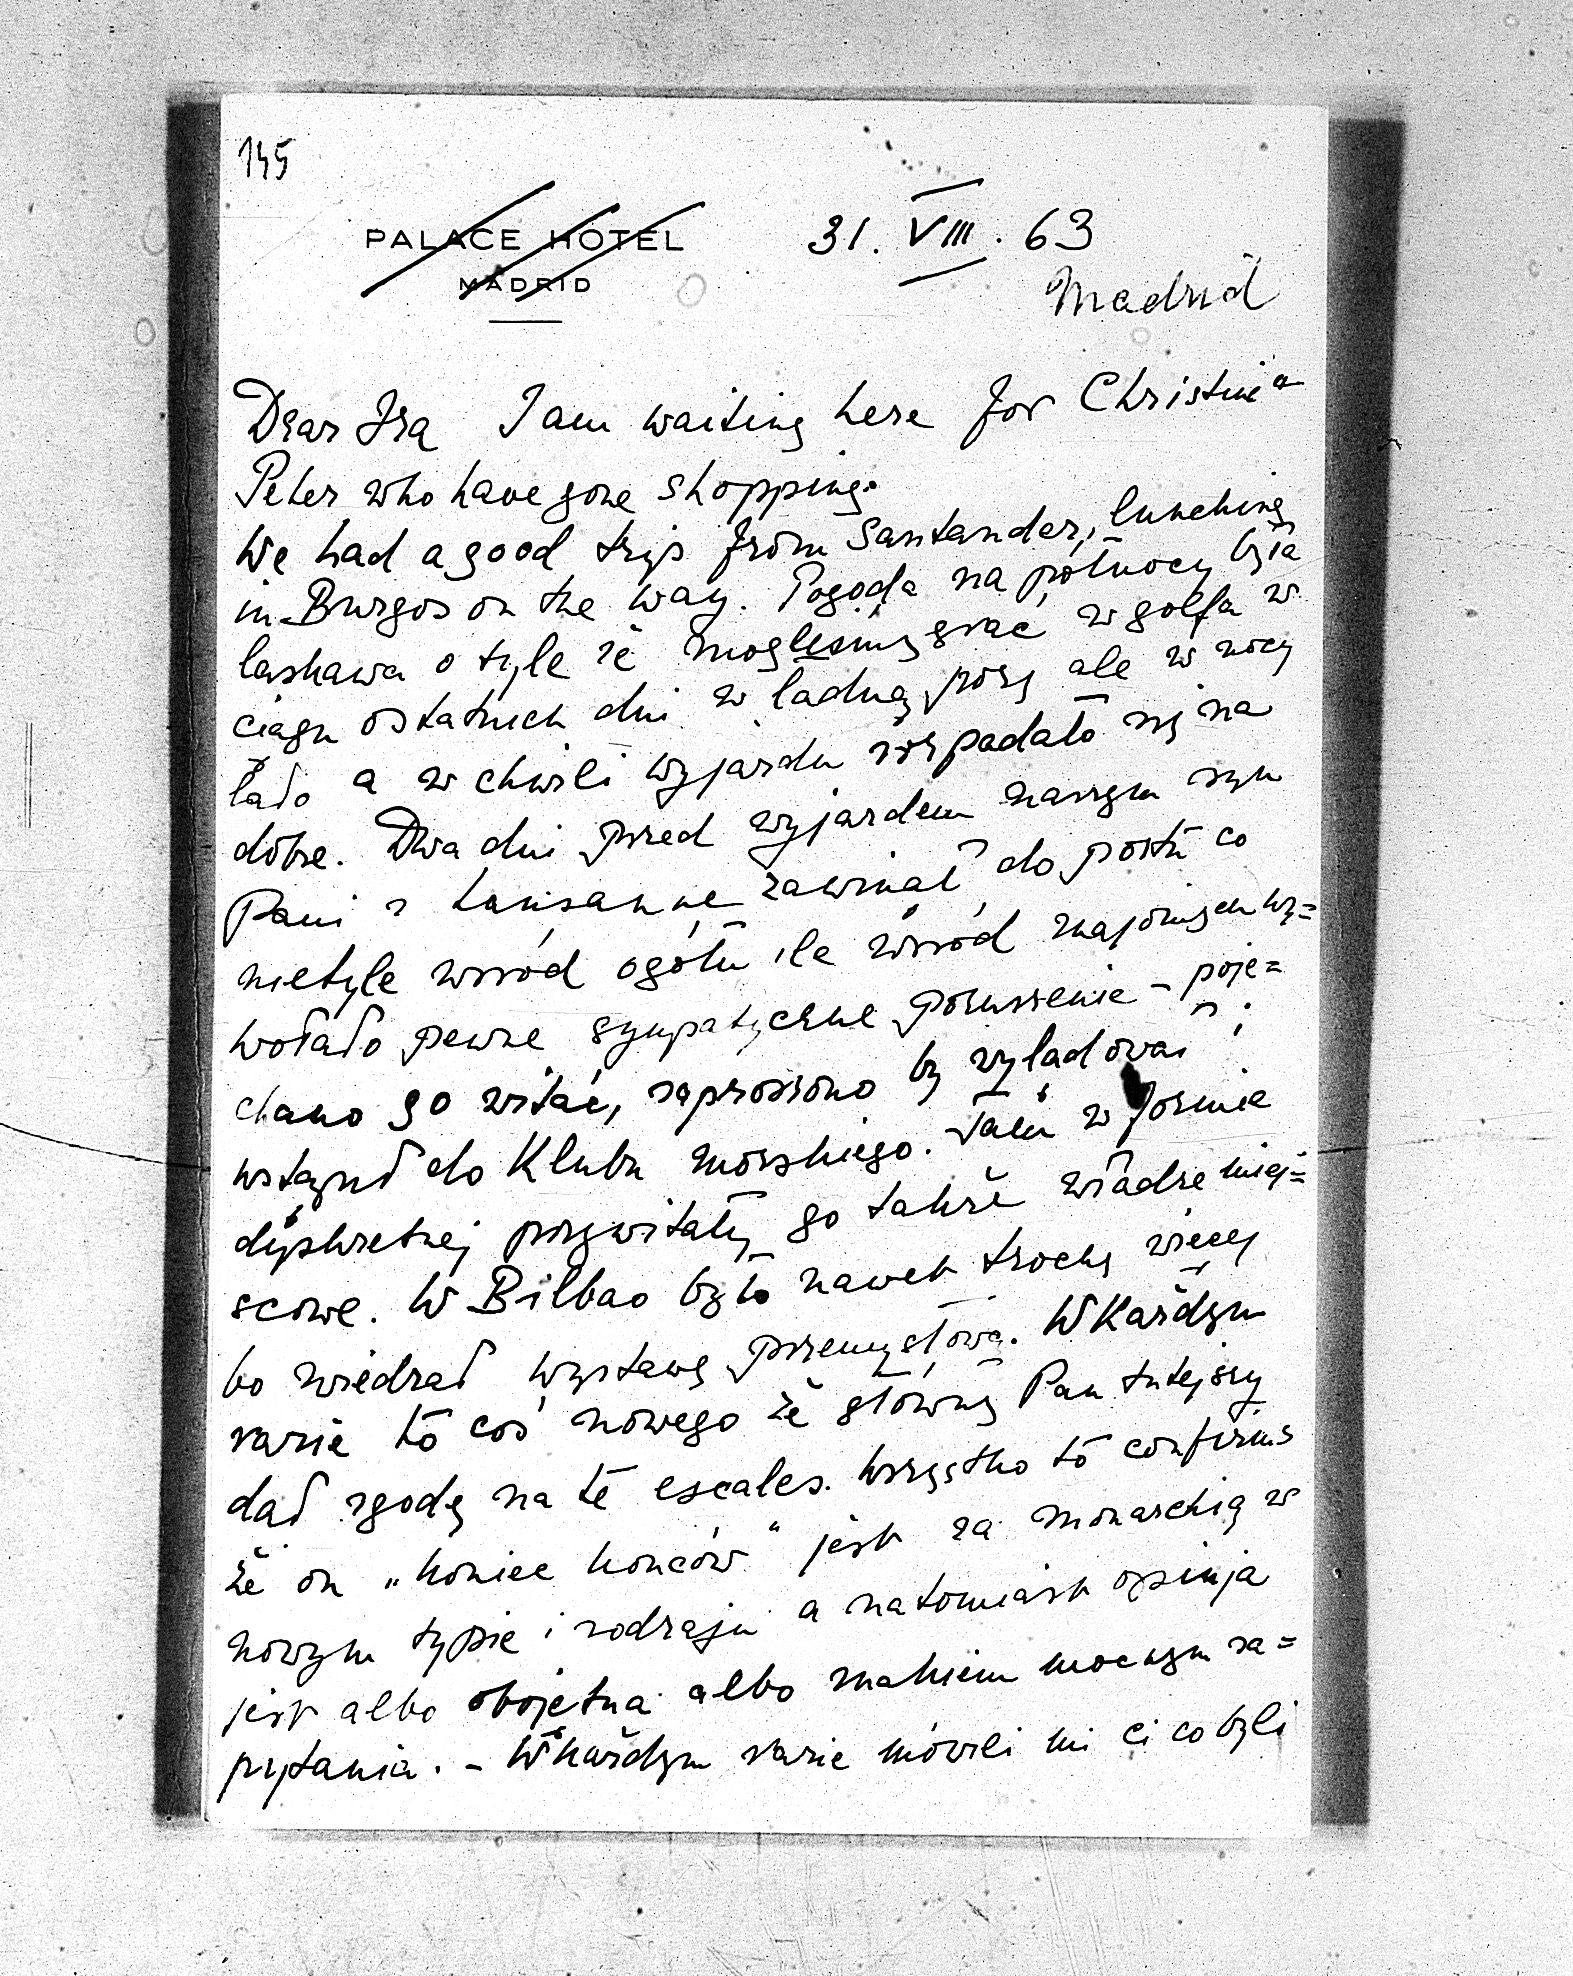 145
PALACE HOTEL
MADRID
31. VIII. 63
Madrid
Dear Ira I am waiting here for Christine a
Peter who have gone shopping.
We had a good trip from Santander, lunching
in Burgos on the way. Pogoda na północy była
laskawa o tyle że mogliśmy grać w golfa w
ciągu ostatnich dni w ładną porę ale w nocy
lało a w chwili wyjazdu rozpadało się na
dobre. Dwa dni przed wyjazdem naszym syn
Pani z Lausanne zawinął do portu co
nietyle wśród ogółu ile wśród znajomych wy=
wołało pewne sympatyczne poruszenie – poje=
chano go witać, zaproszono by wylądował i
wstąpił do Klubu morskiego. Tam w formie
dyskretnej przywitały go także władze miej=
scowe. W Bilbao było nawet trochę więcej
bo zwiedzał wystawę przemysłową. W Każdym
razie to coś nowego że główny Pan tutejszy
dał zgodę na te escales. Wszystko to confirms
że on „koniec końców" jest za monarchią w
nowym typie i rodzaju a natomiast opinja
jest albo obojętna albo znakiem mocnym za=
pytania. – W każdym razie mówili mi ci co byli